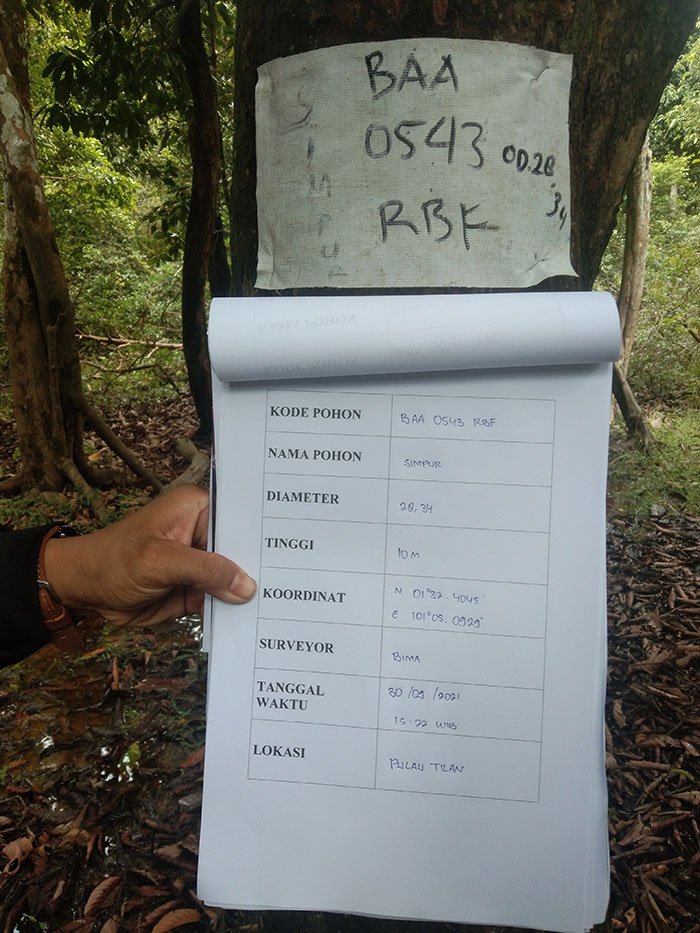 SIMPUR
BAA
0543
OD.28
.34
RBF
KODE POHON BAA 0543 RBF
NAMA POHON SIMPUR
DIAMETER 28,34
TINGGI 10 M
KOORDINAT N 01°32.4045'
E 101°05.0929'
SURVEYOR BIMA
TANGGAL 30/09/2021
WAKTU 15:22 WIB
LOKASI PULAU TILAN